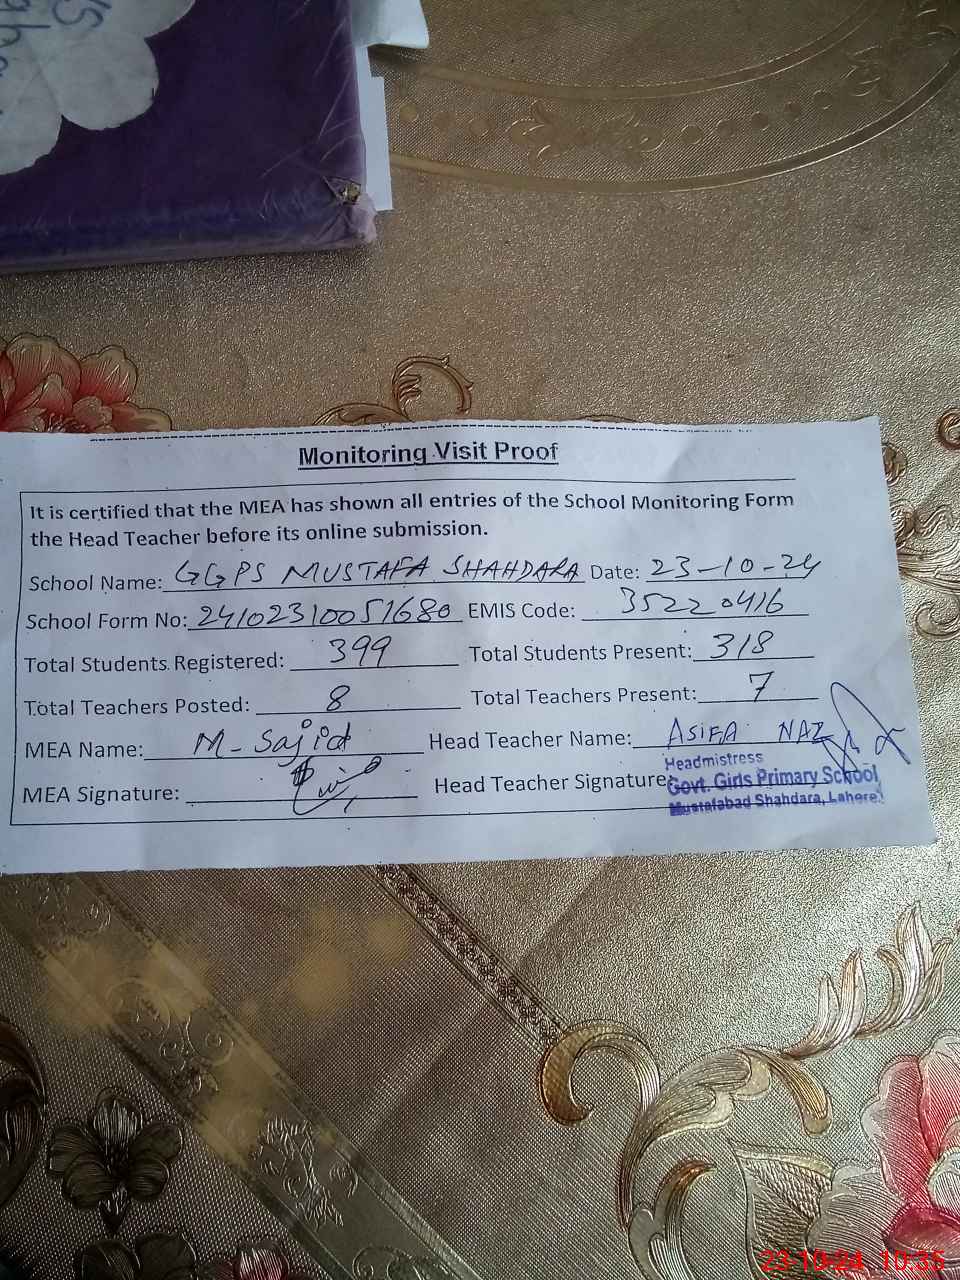 Monitoring Visit Proof
It is certified that the MEA has shown all entries of the School Monitoring Form
the Head Teacher before its online submission.
School Name: GGPS MUSTAFA SHAHDARA Date: 23-10-24
School Form No: 24102310051680 EMIS Code: 35220416
Total Students Registered: 399 Total Students Present: 318
Total Teachers Posted: 8 Total Teachers Present: 7
MEA Name: M-Sajid Head Teacher Name: ASIFA NAZ
MEA Signature: Head Teacher Signature:
Headmistress
Govt. Girls Primary School
Mustafabad Shahdara, Lahore.
23-10-24 10:35